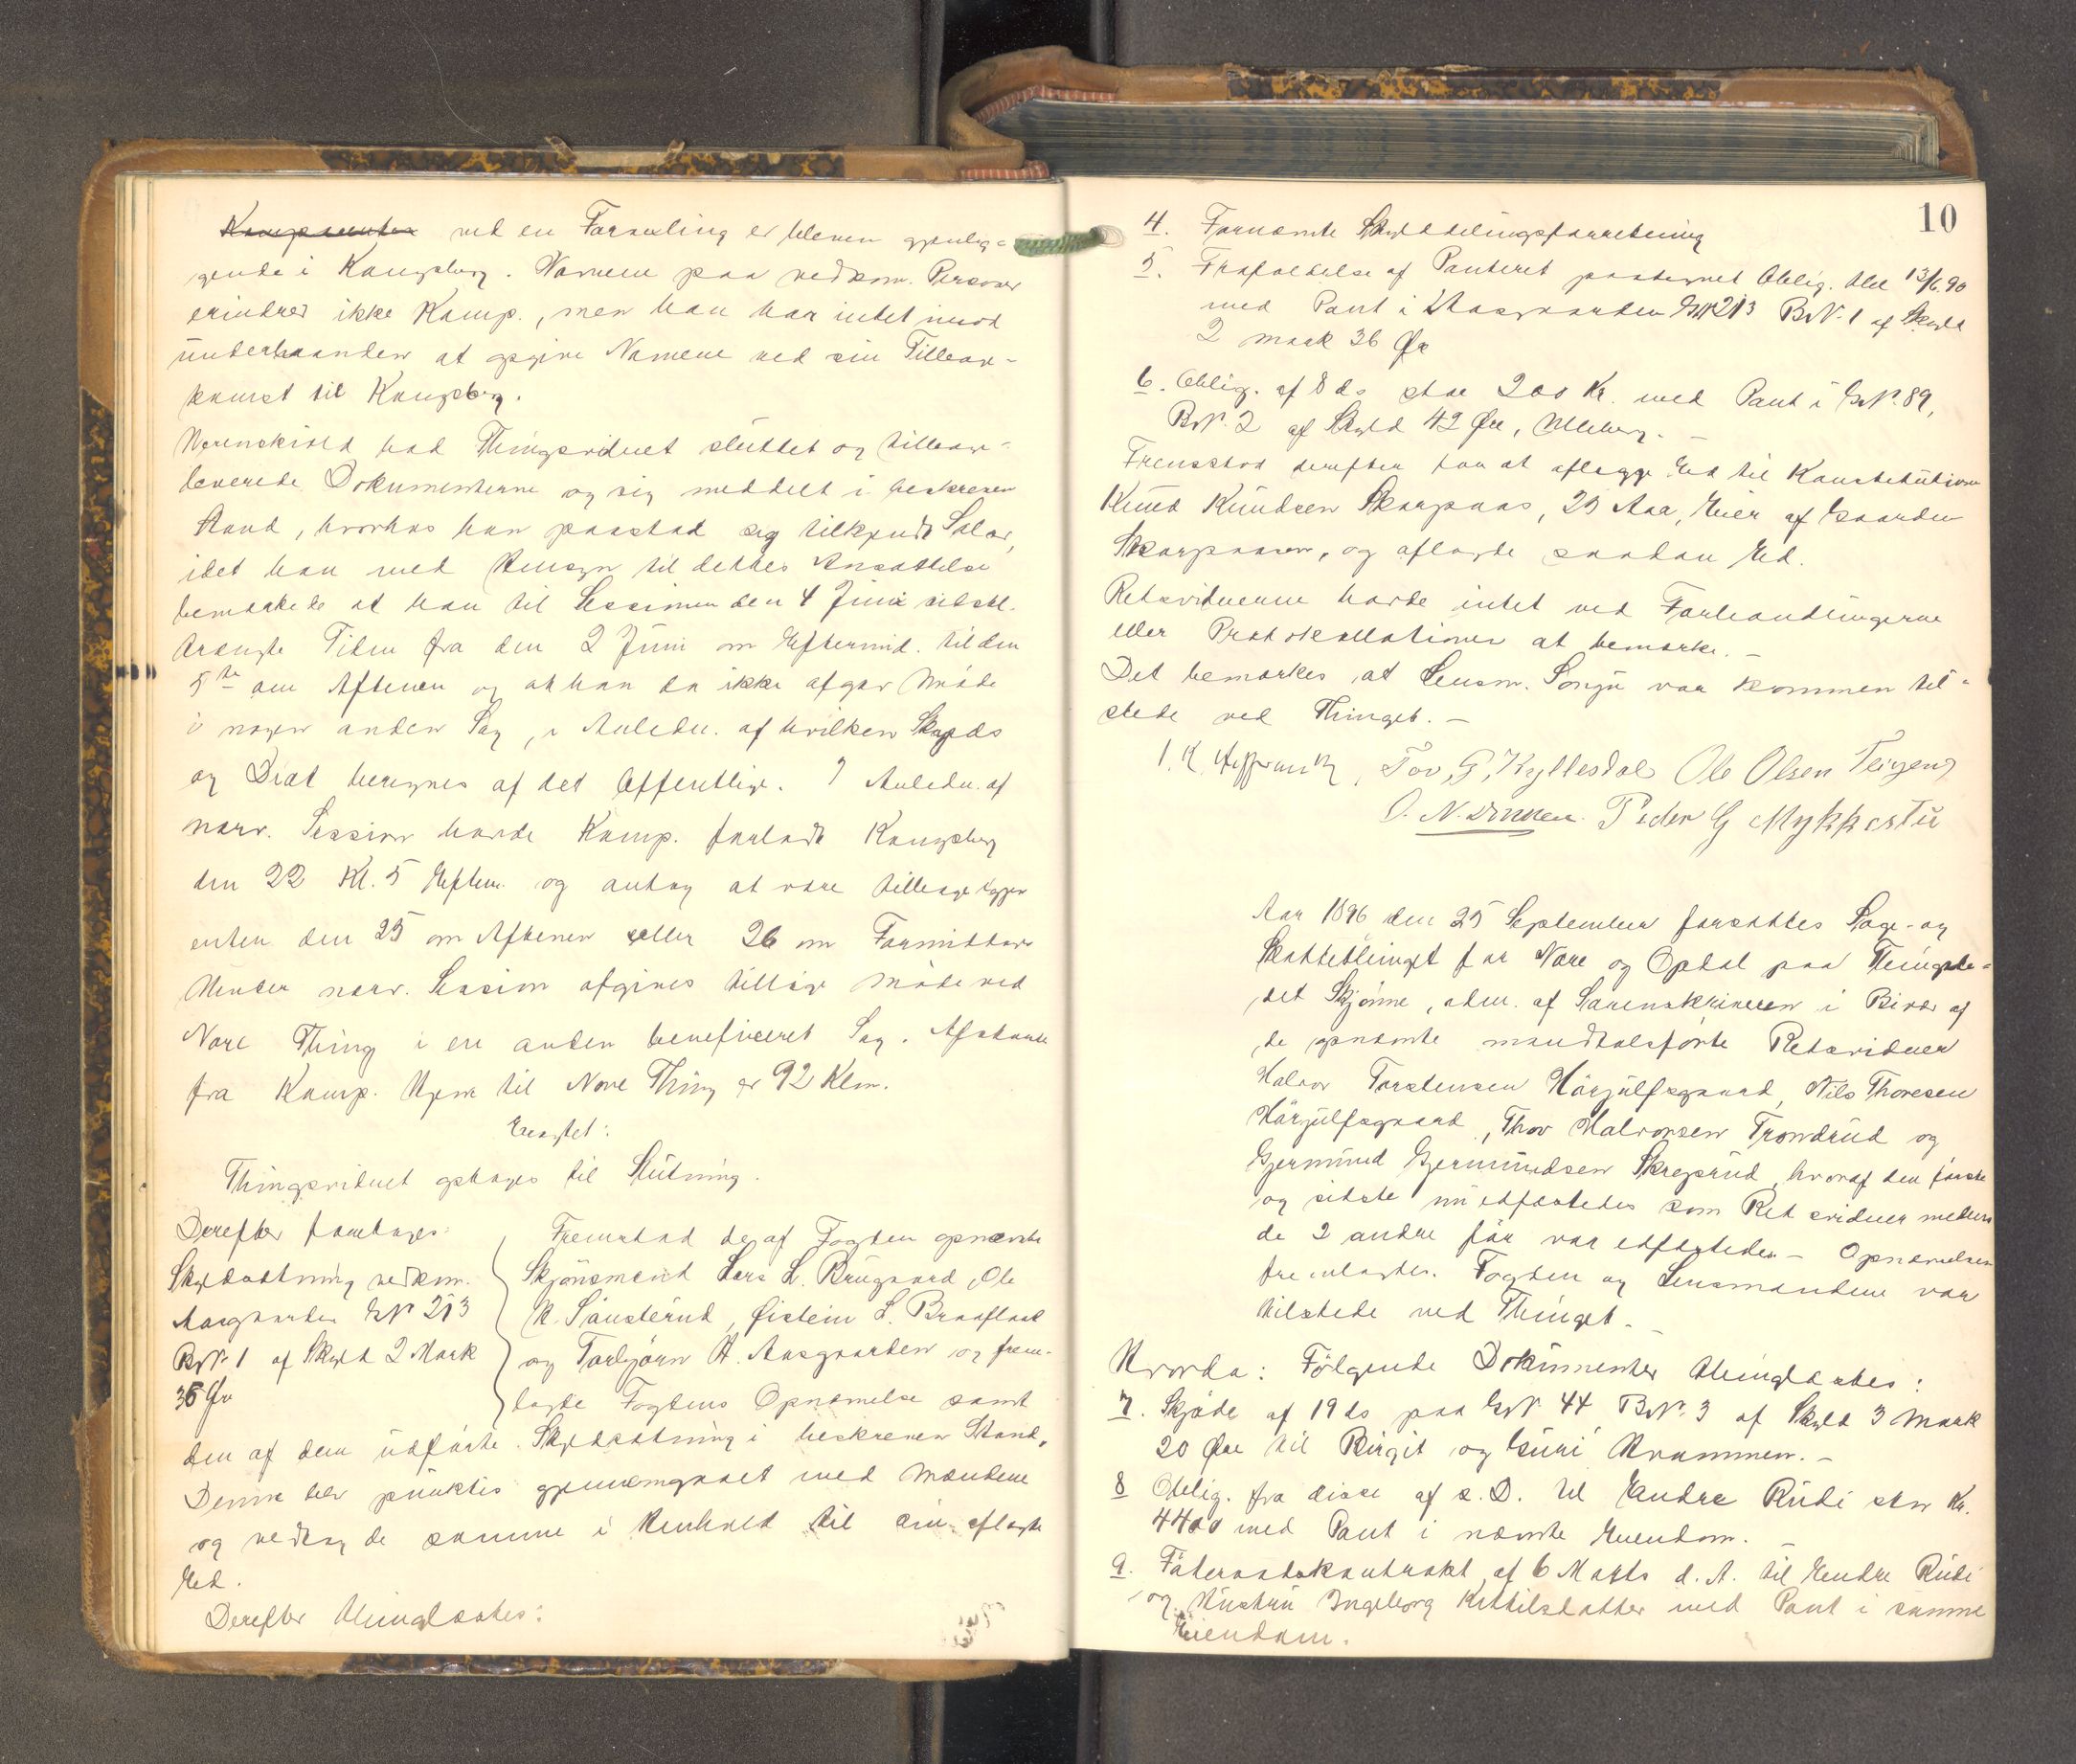 Komparenten ved en Forvexling er bleven gjenlig-
gende i Kongsberg. Navnene paa vedkom. Personer
erindrer ikke Komp., men han har intet imod
underhaanden at opgive Navnene ved sin Tilbage-
komst til Kongsberg.
had Thingsvidnet sluttet og tilbage-
leverede Dokumenterne og sig meddelt i beskreven
Stand, hvorhos han paastod sig tilkjendt Salær,
idet han med Hensyn til dettes Ansættelse
bemærkede at han til Sessionen den 4 Juni sidstl.
trængte Tiden fra den 2 Juni om Eftermid. til den
5te om Aftenen og at han da ikke afgav Møde
i nogen anden Sag, i Anledn. af hvilken Skyds
og Diæt beregnes af det Offentlige. I Anledn. af
nærv. Session havde Komp. forladt Kongsberg
den 22 Kl. 5 Efterm. og antog at være tilbage igjen
enten den 25 om Aftenen eller 26 om Formiddag
Under nærv. Session afgives tillige Møde ved
Nore Thing i en anden beneficeret Sag. Afstand
fra Komp. Hjem til Nore Thing er 92 Klm.
Eragtet:
Thingsvidnet optages til Slutning.
Derefter foretages:
Skyldsætning vedkom.
Aasgaarden GN 213
BN. 1 af Skyld 2 Mark
36 Øre
Fremstod de af Fogden opnævnte
Skjönsmænd Lars L. Brugaard, Ole
K. Sönsterud, Øistein L. Braaflaat
og Torbjörn H. Aasgaarden og frem-
lagde Fogdens Opnævnelse samt
den af dem udförte Skyldsætning i beskreven Stand,
Denne blev punktvis gjennemgaaet med Mændene
og vedtog de samme i Henhold til sin aflagte
Ed.
Derefter thinglæstes:
10
4. Fornævnte Skylddelingsforretning
5. Frafaldelse af Panteret paategnet Oblig. dat 13/6 90
med Pant i Aasgaarden GN 213 BN. 1 af Skyld
2 mark 36 Øre
6. Oblig. af 8 ds stor 200 Kr. med Pant i GN. 89,
BN. 2 af Skyld 42 Øre,
Fremstod derefter for at aflægge Ed til Konstitutionen
Knud Knudsen Skarpaas, 25 Aar, Eier af Gaarden
Skarpaasen, og aflagde saadan Ed.
Retsvidnerne havde intet ved Forhandlingerne
eller Protokollationen at bemærke. -
Det bemærkes, at Lensm. Songe var kommen til-
stede ved Thinget. -
Tov, G, Kyllesdal Ole Olsen Teigen
Peder G Mykkestu
Aar 1896 den 25 September forsattes Sage- og
Skattethinget for Nore og Opdal paa Thingste-
det Skjönne, adm. af Sorenskriveren i Bivær af
de opnævnte mandtalsförte Retsvidner
Halvor Torstensen Hörjulfsgaard, Nils Thoresen
Hörjulfsgaard, Thor Halvorsen Trondrud og
Gjermund Gjermundsen Skregsrud, hvoraf den förste
og sidste nu edfæstedes som Retsvidner medens
de 2 andre för var edfæstede. - Opnævnelsen
fremlagdes. Fogden og Lensmændene var
tilstede ved Thinget. -
Hvorda: Fölgende Dokumenter thinglæstes:
7. Skjöde af 19 ds paa GN 44 BN. 3 af Skyld 3 Mark
20 Øre til Birgit og Guri Kvammen. -
8 Oblig. fra disse af s. D. til Endre Rudi stor Kr.
4400 med Pant i nævnte Eiendom. -
9. Föderaadskontrakt af 6 Marts d. A. til Endre Rudi
og Hustru Ingeborg Kittilsdatter med Pant i samme
Eiendom.